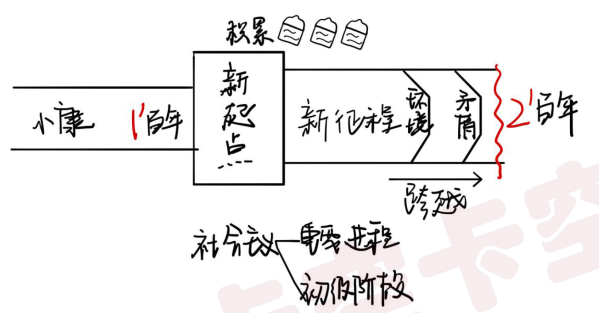 积累
小康 1'百年
新起点
新征程
环境
矛盾
2'百年
跨越
社会主义
重要进程
初级阶段
卡卡空